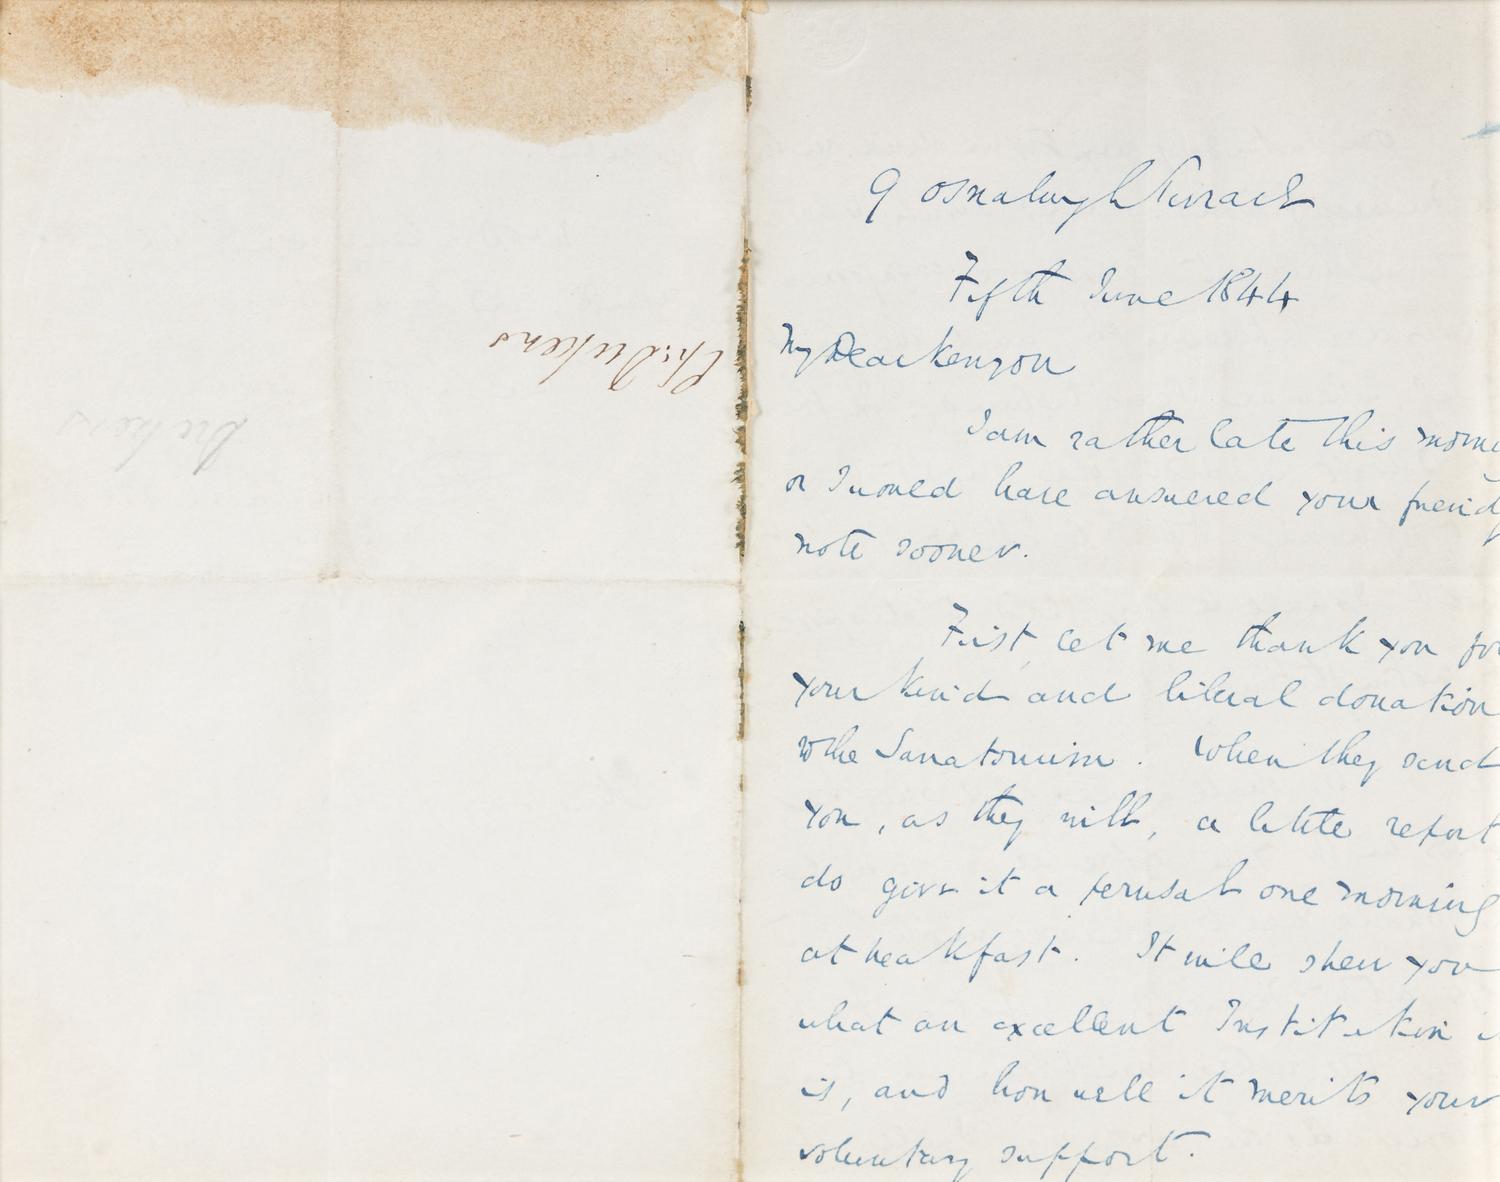 Chs: Dickens
Dickens
9 Osnaburgh Terrace
Fifth June 1844
My Dear Kenyon
I am rather late this morn
or I would have answered your friend
note sooner.
First, let me thank you for
your kind and liberal donation
to the Sanatorium. When they send
you, as they will, a little report
do give it a perusal one morning
at breakfast. It will shew you
what an excellent Institution i
is, and how well it merits your
voluntary support.